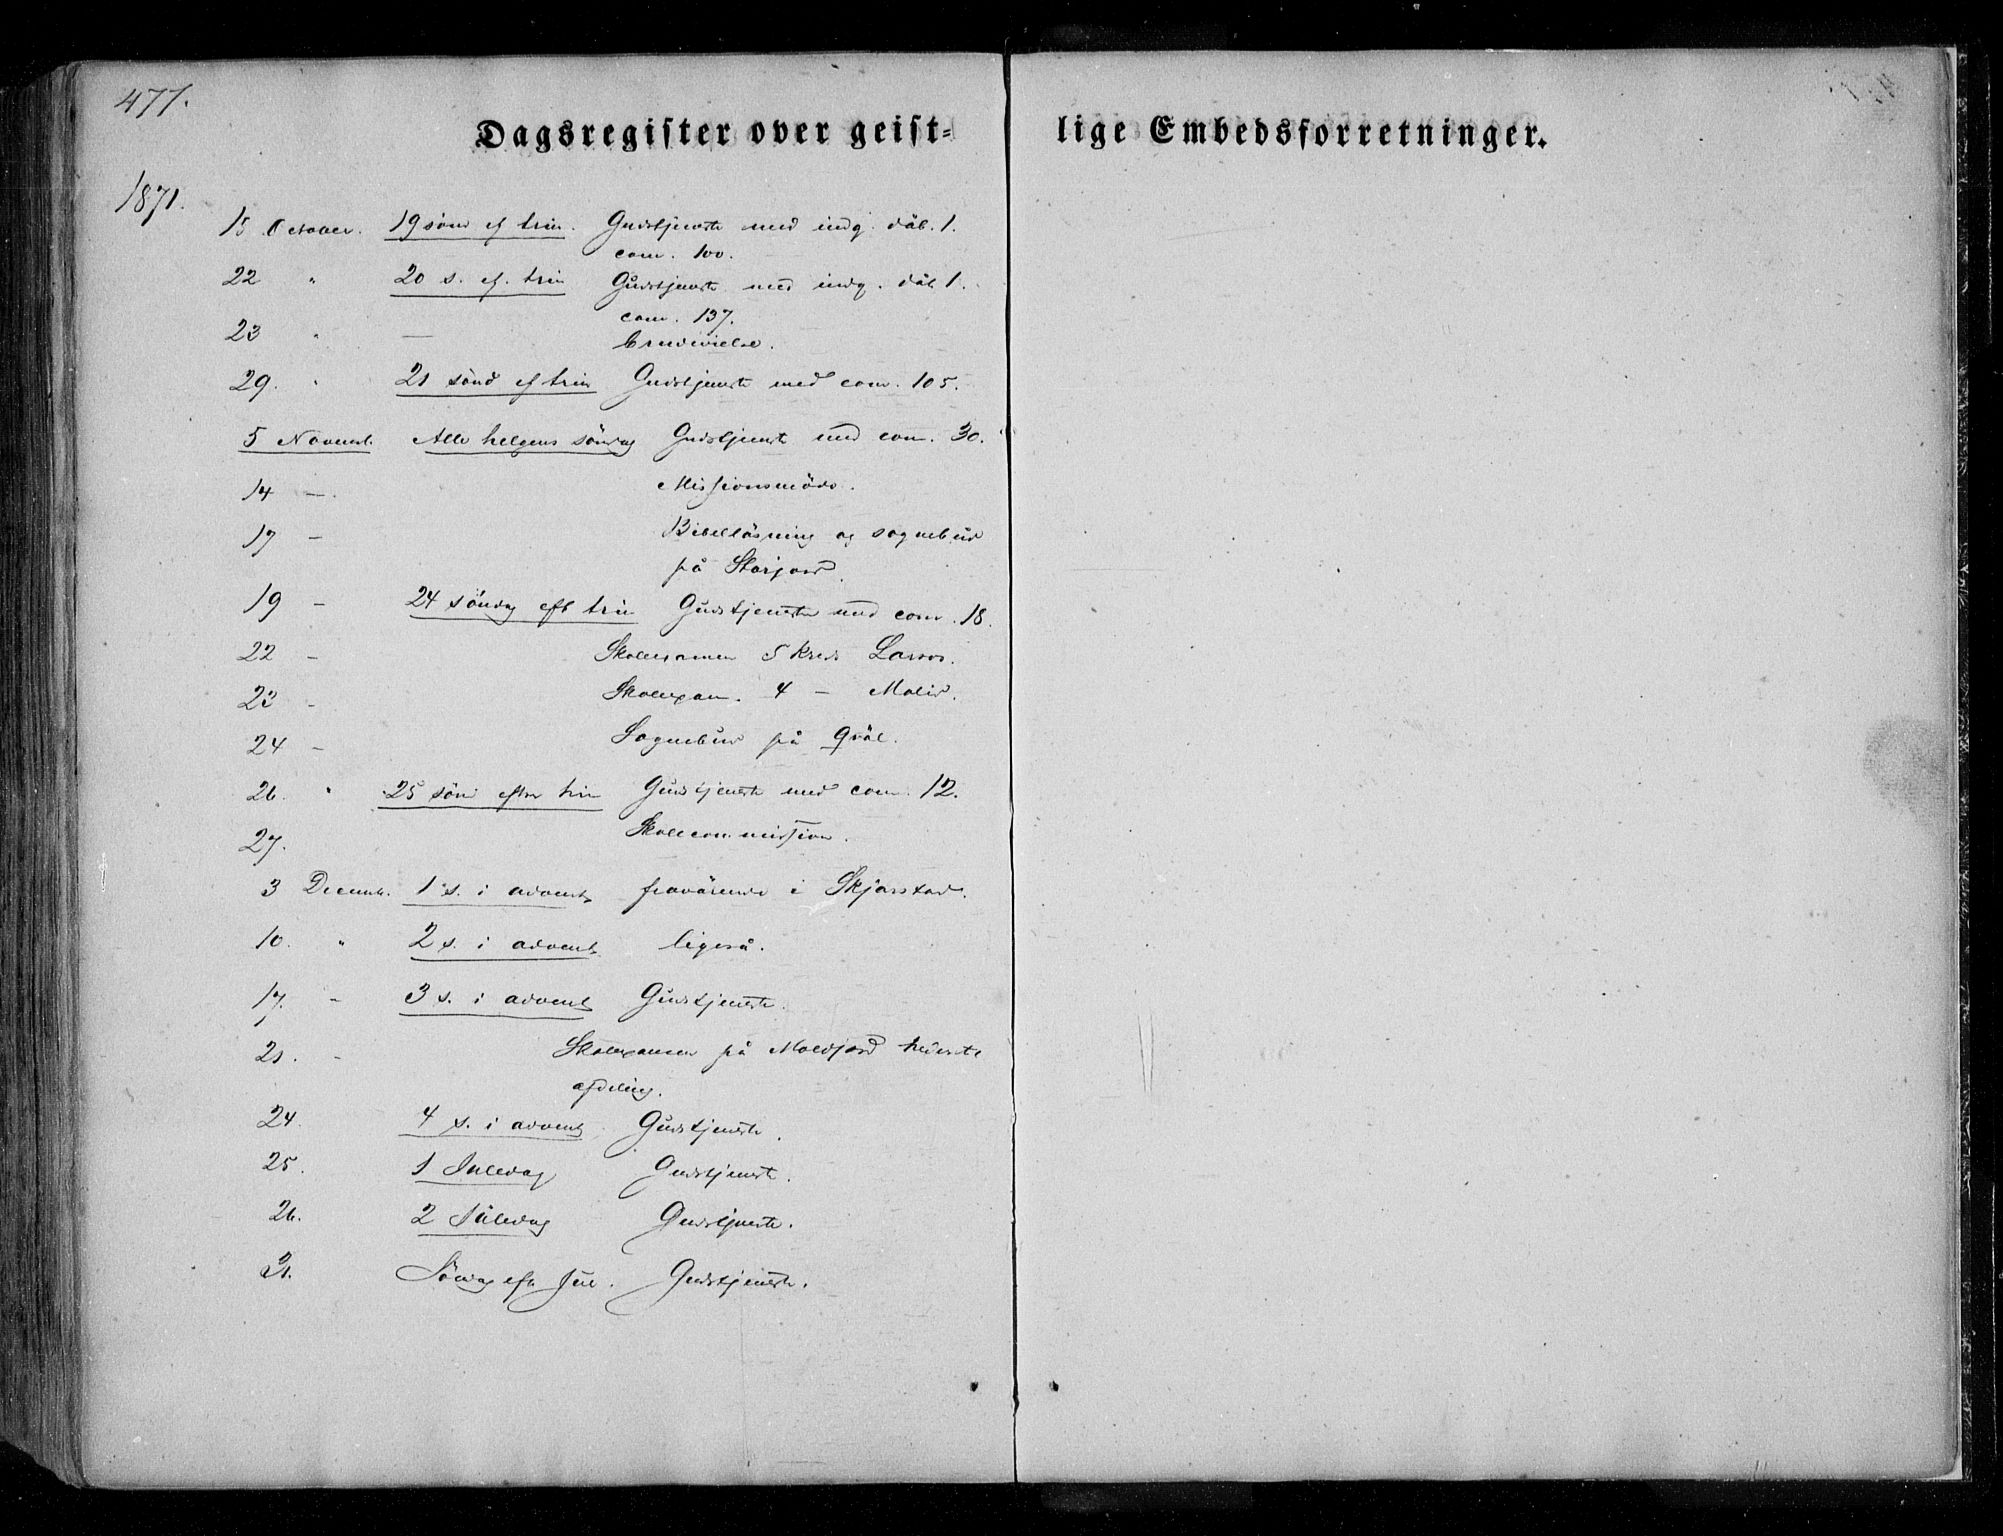 477.
Dagsregister over geist=lige Embedsforretninger.
1871.
15 October. 19 sönd ef trin. Gudstjeneste med indg. dåb. 1.
com. 100.
22 " 20 s. ef. trin Gudstjeneste med indg. dåb 1.
com. 137.
23 " — Brudevielse.
29. " 21 sönd ef trin Gudstjeneste med com. 105.
5 Novemb. Alle helgens söndag Gudstjeneste med com. 30.
14 — Missionsmöde.
17 — Bibelläsning og sognebud
på Storjord.
19 — 24 söndag eft trin Gudstjeneste med com. 18.
22 — Skolexamen 5 Kreds Larsos.
23 — Skolexam. 4 — Molid.
24 — Sognebud på Qväl.
26. " 25 sönd efter trin Gudstjeneste med com. 12.
27. Skolecommission.
3 Decemb. 1 s. i advent fraværende i Skjerstad.
10. " 2 s. i advent ligeså.
17. — 3 s. i advent Gudstjeneste.
21. — Skolexamen på Moldjord nederste
afdeling.
24. 4 s. i advent Gudstjeneste.
25. 1 Juledag Gudstjeneste.
26. 2 Juledag Gudstjeneste.
31. Söndag eft Jul. Gudstjeneste.